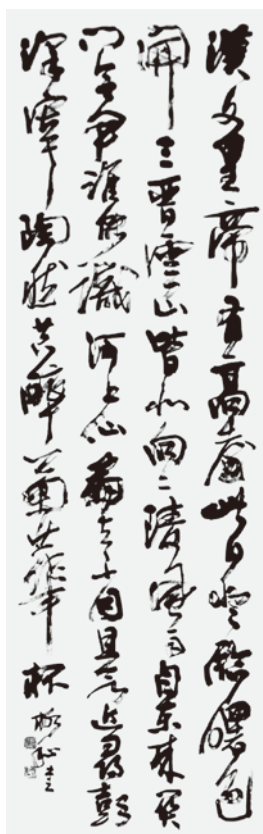 漢文皇帝有高臺此日登臨曙色
開三晉雲山皆北向二陵風雨自東來關
門令尹誰能識河上仙翁去不回且欲近尋彭
澤宰陶然共醉菊華杯